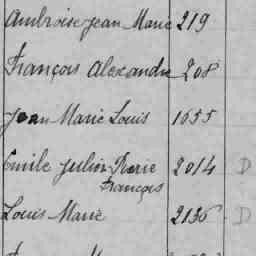 Ambroise Jean Marie 219
François Alexandre 208
Jean Marie Louis 1655
Emile Julien Pierre 2014 D
François
Louis Marie 2136 D